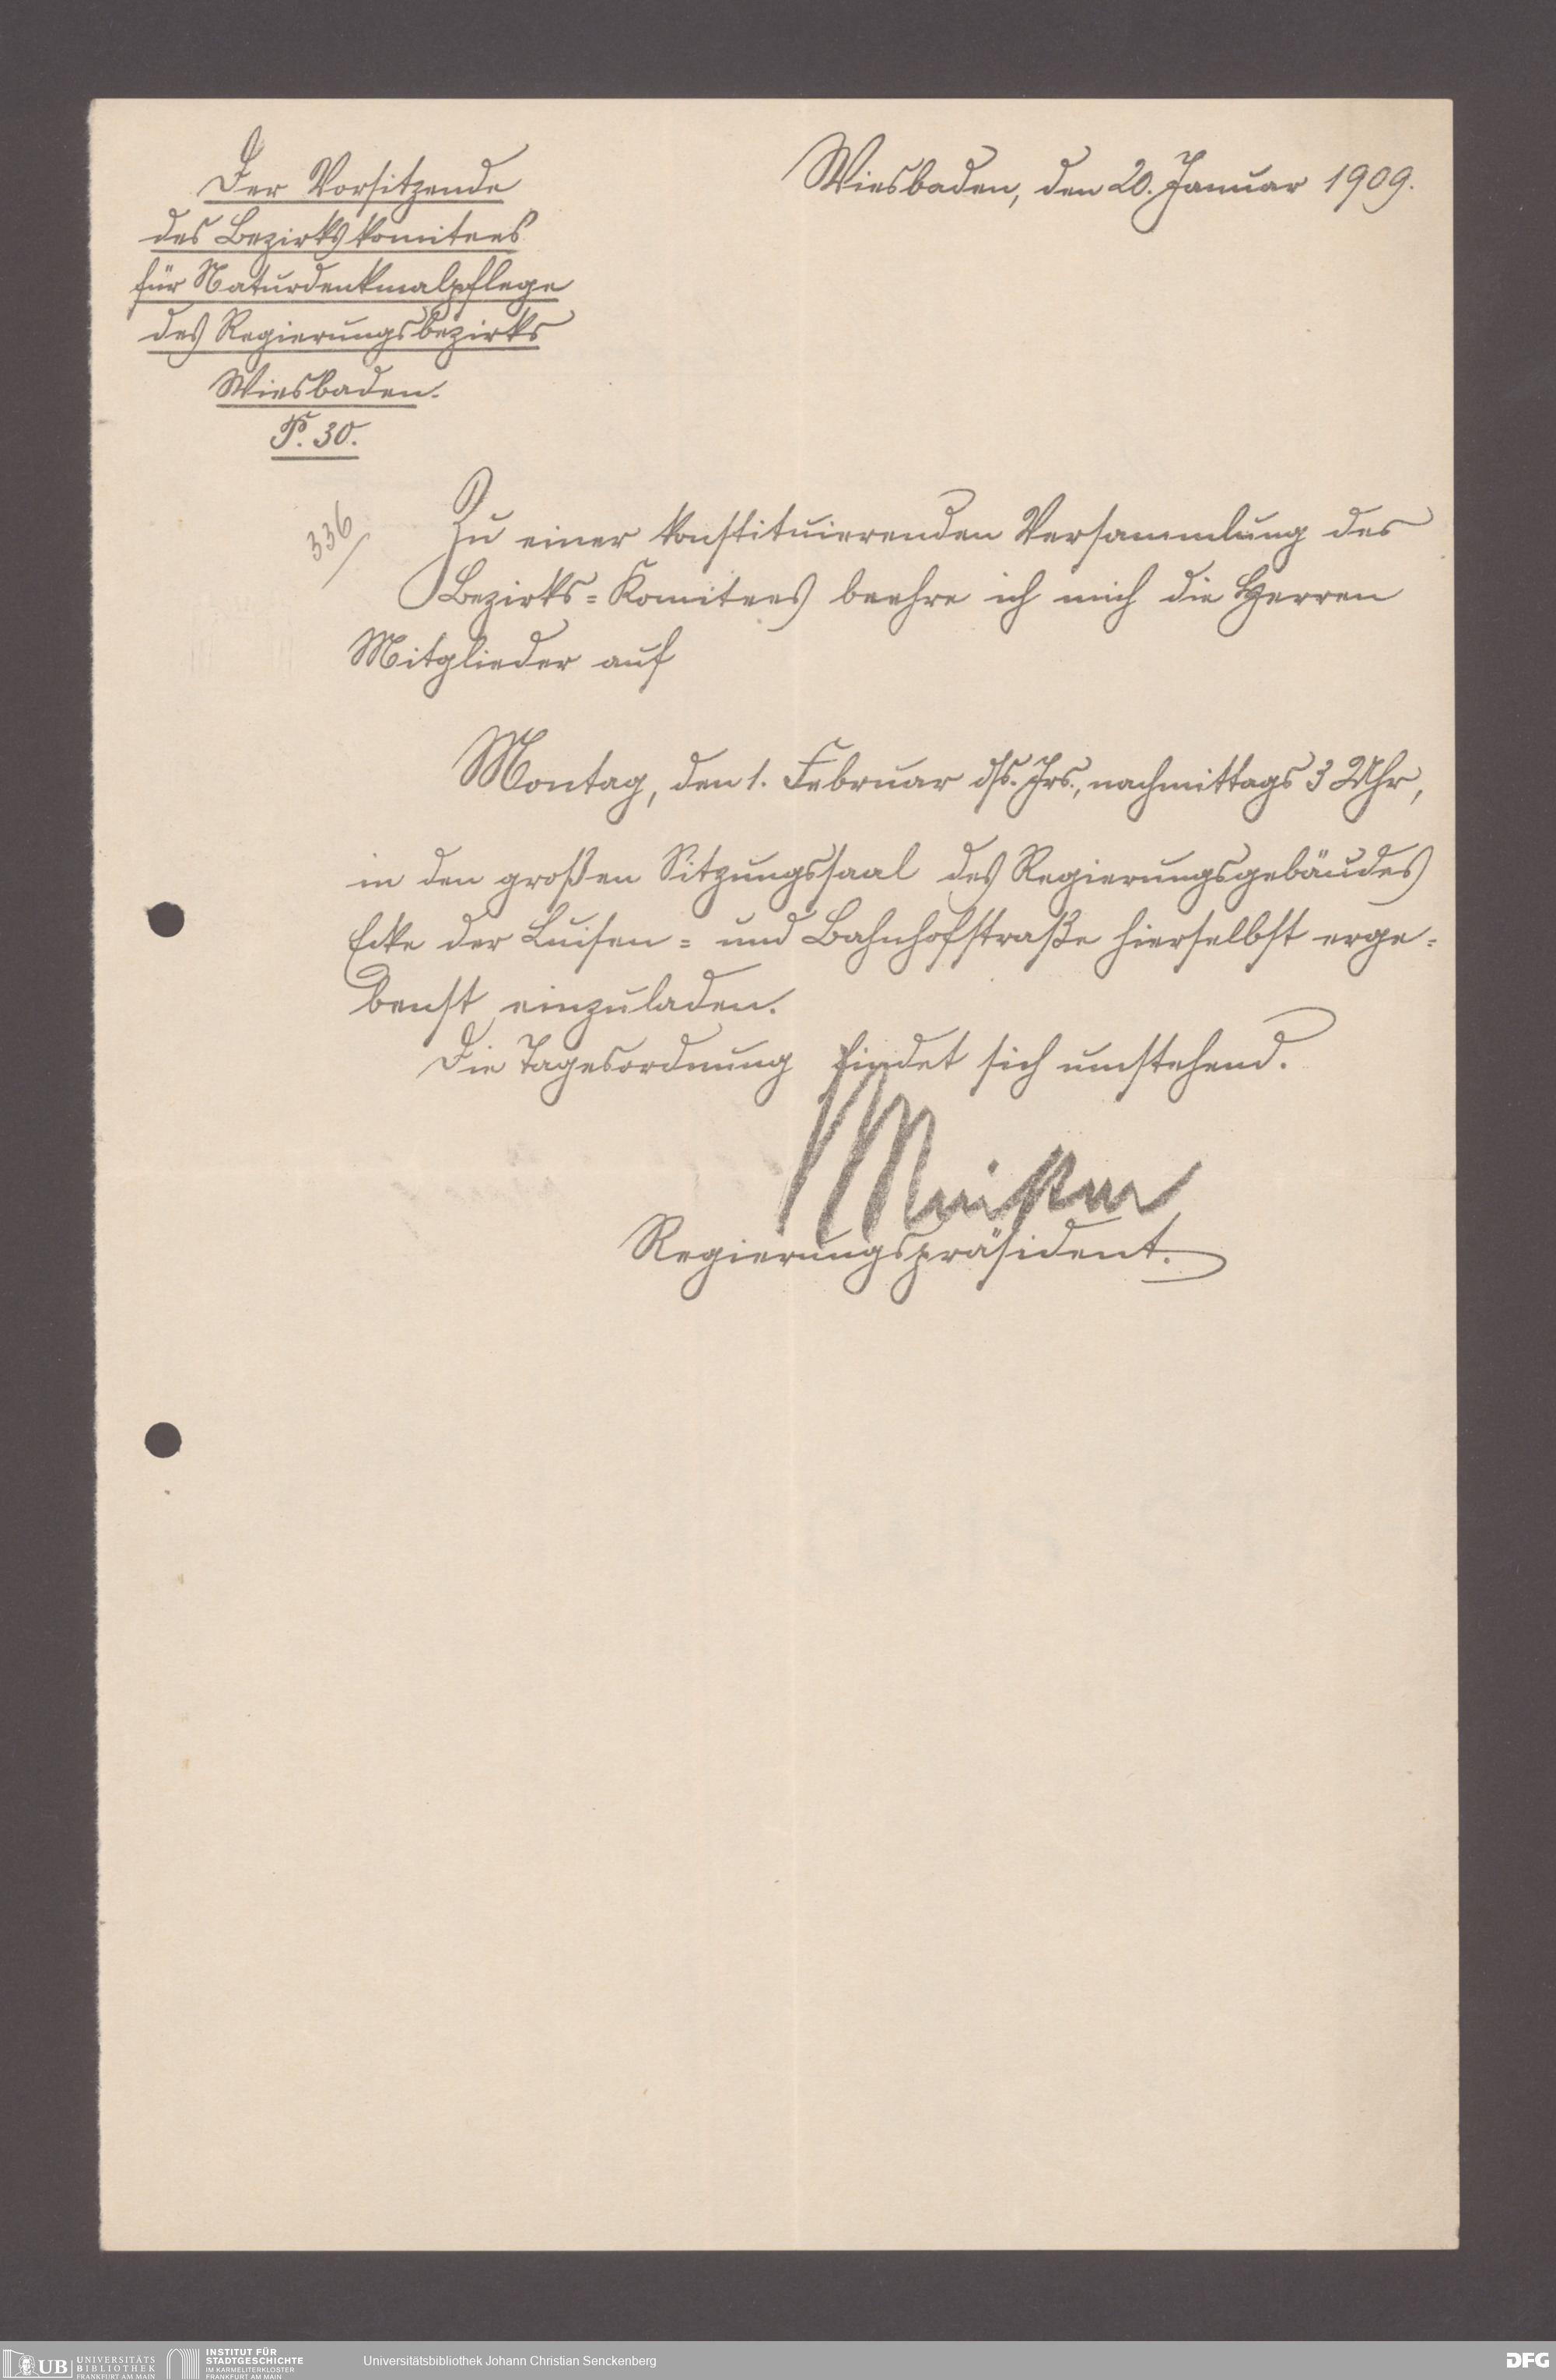 Der Vorsitzende
des Bezirkskomitees
für Naturdenkmalpflege
des Regierungsbezirks
Wiesbaden.
P. 30.
Wiesbaden, den 20. Januar 1909.
336
Zu einer konstituierenden Versammlung des
Bezirks-Komitees beehre ich mich die Herren
Mitglieder auf
Montag, den 1. Februar ds. Jrs., nachmittags 3 Uhr,
in den großen Sitzungssaal des Regierungsgebäudes
Ecke der Luisen- und Bahnhofstraße hierselbst erge-
benst einzuladen.
Die Tagesordnung findet sich umstehend.
Meister
Regierungspräsident.
UB UNIVERSITÄTS BIBLIOTHEK FRANKFURT AM MAIN
INSTITUT FÜR STADTGESCHICHTE IM KARMELITERKLOSTER FRANKFURT AM MAIN
Universitätsbibliothek Johann Christian Senckenberg
DFG